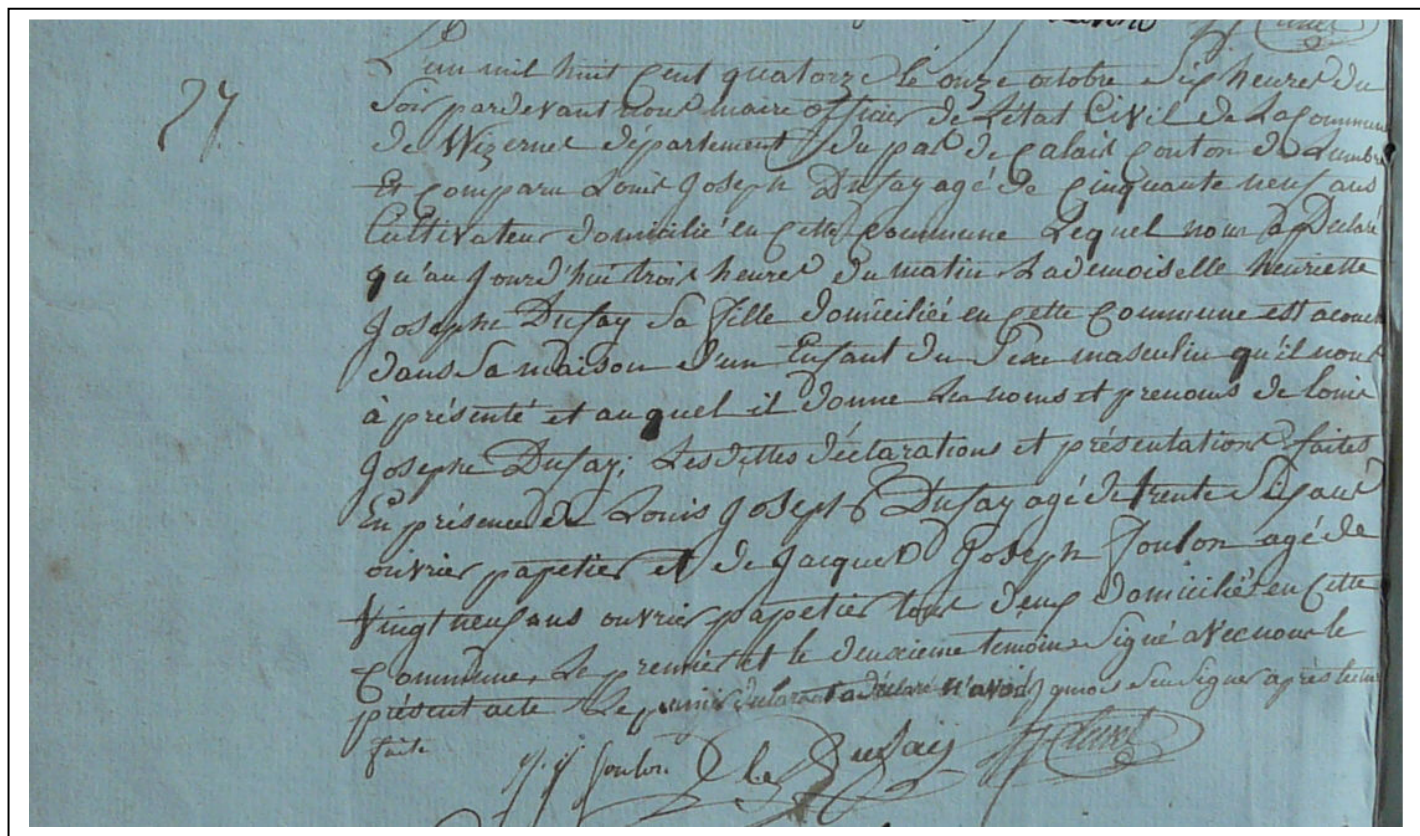 27
L'an mil huit Cent quatorze le onze octobre Six heures du
Soir pardevant nous maire officier de L'état Civil de La Commune
de Wizernes département du pas de Calais Conton de Lumbre
Est Comparu Louis Joseph Dufay agé de Cinquante neuf ans
Cultivateur domicilié en Cette Commune Lequel nous à Déclaré
qu'au Jourd'hui trois heures du matin Lademoiselle henriette
Josephe Dufay Sa fille domiciliée en Cette Commune est acouch
dans Sa maison d'un Enfant du Sexe masculin qu'il nous
à présenté et auquel il donne Les noms et prenoms de louis
Josephe Dufay; Lesdittes déclarations et présentations faites
En présence de Louis Joseph Dufay agé de trente Six ans
ouvrier papetier et de Jacques Joseph Foulon agé de
Vingt neuf ans ouvrier papetier tous deux domiciliés en Cette
Commune, Le premier et le deuxieme temoins Signé avec nous le
présent acte Le premier declarant a déclaré n'avoir Signer après lecture
faite
j. j foulon L Dufaÿ